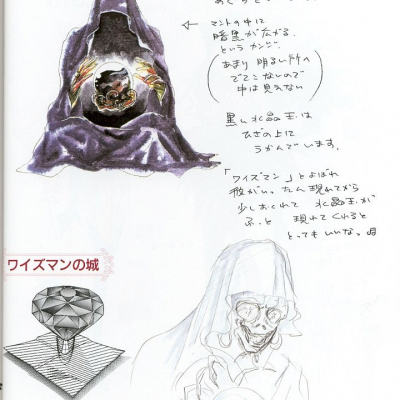 ← マントの中に
暗黒が広がる.
というカンジ.
(あまり明るい所へ
でてこないので
中は見えない)
黒い水晶玉は
ひざの上に
うかんでいます.
「ワイズマン」とよばれ
彼がいったん現れてから
少しおくれて 水晶玉が
ふっと 現れてくれると
とってもいいな。
ワイズマンの城